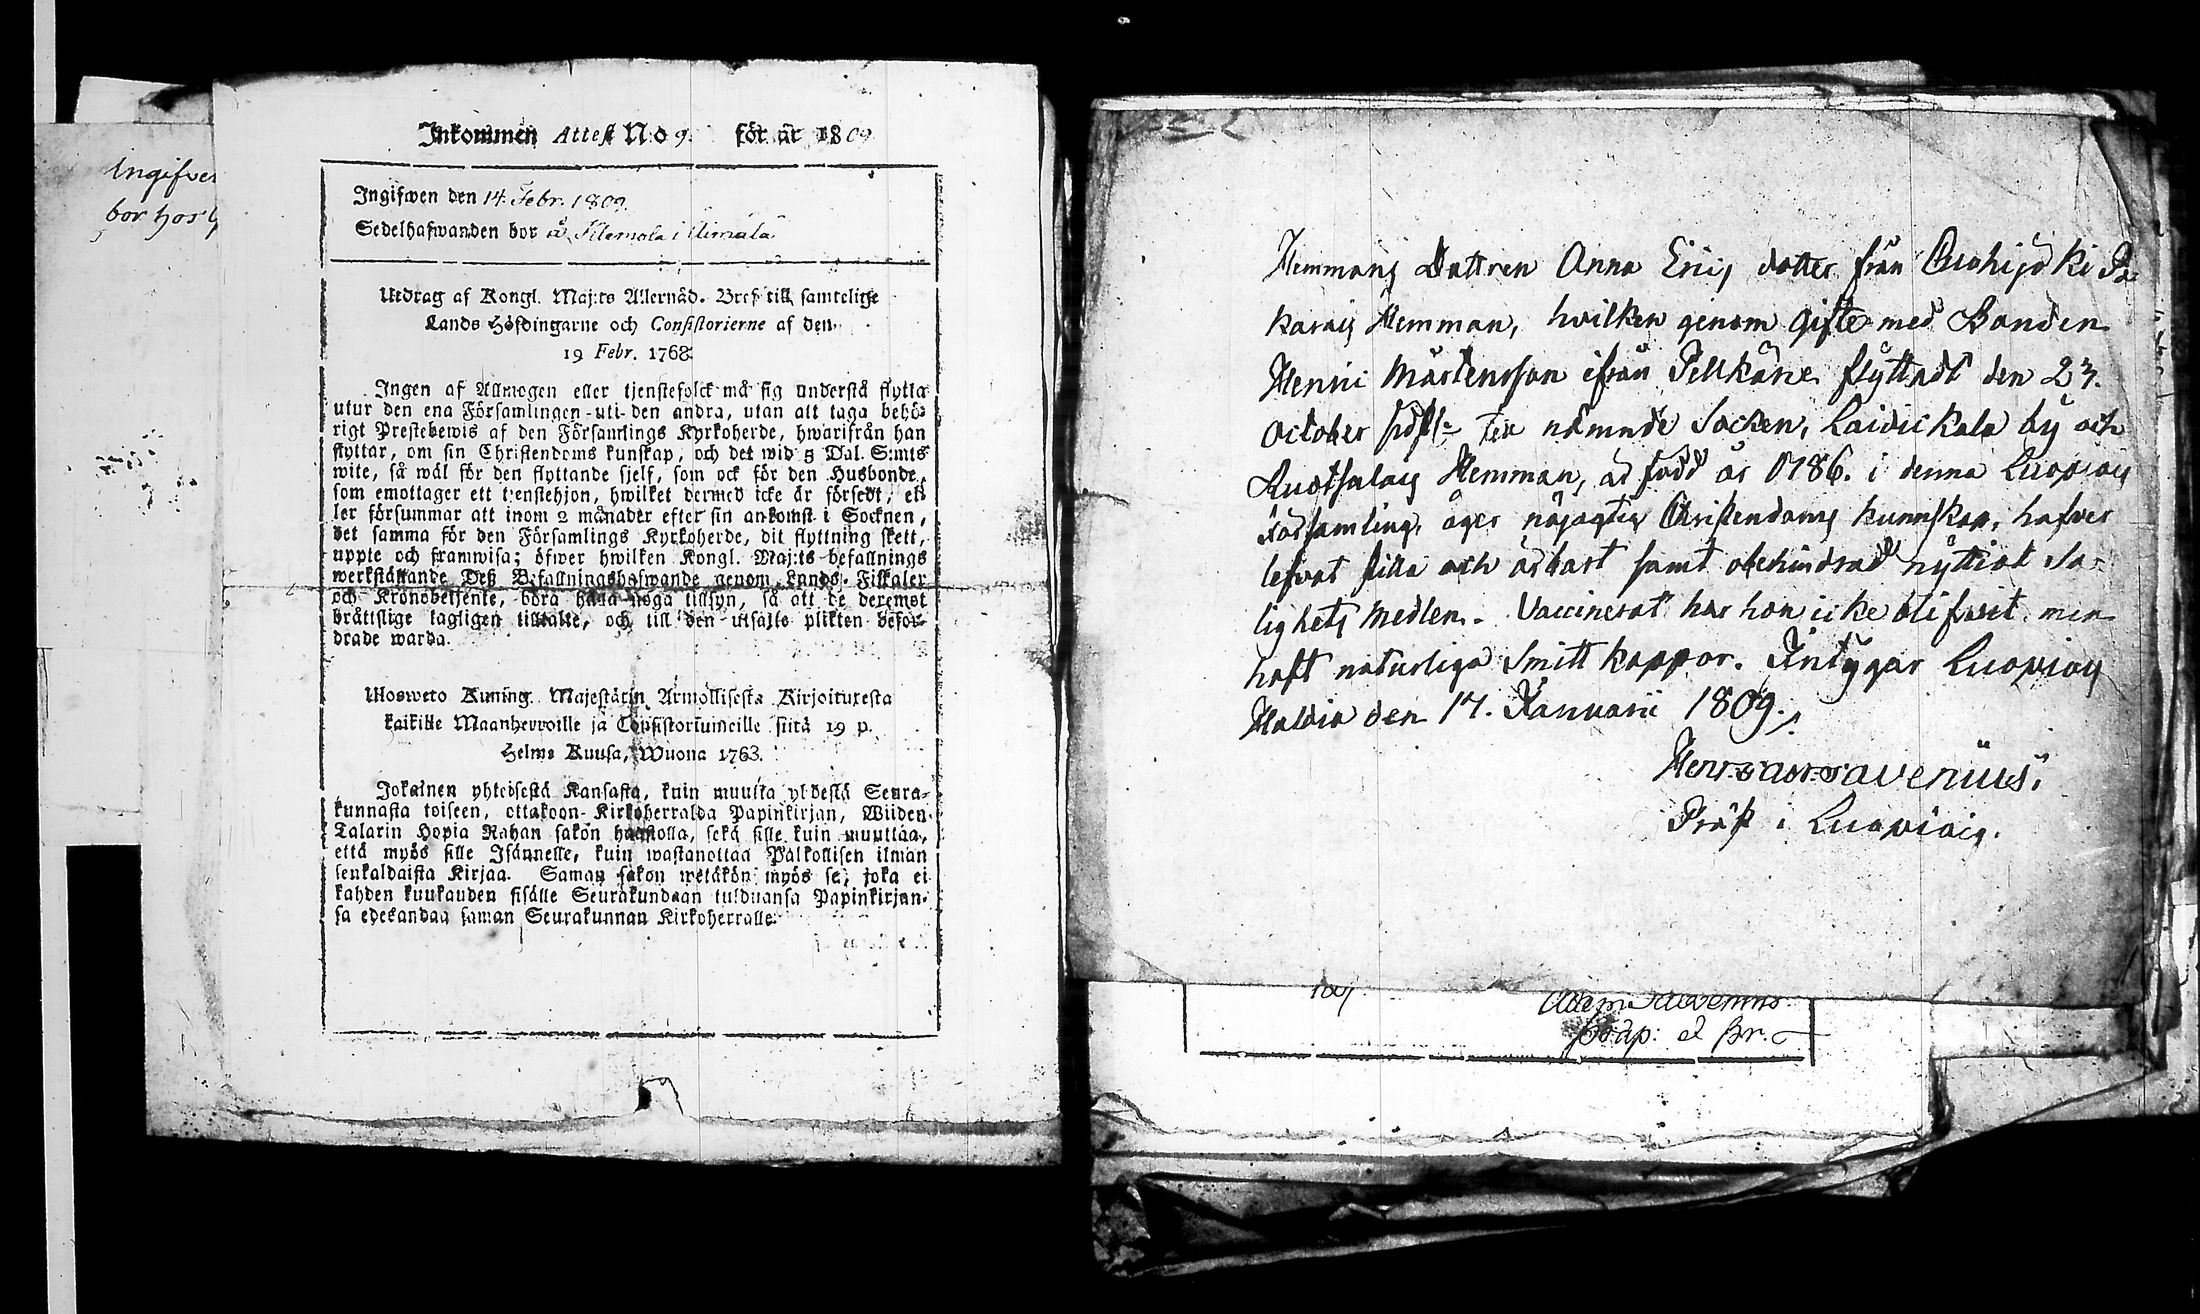 Ingifver
bor hos
Inkommen Attest No 9. för år 1809
Ingifwen den 14. Febr. 1809.
Sedelhafwanden bor å
Utdrag af Kongl. Maj:ts Allernåd. Bref till samtelige
Lands Höfdingarne och Consistorierne af den
19 Febr. 1768.
Ingen af Allmogen eller tjenstefolck må sig understå flytta
utur den ena Församlingen uti den andra, utan att taga behö-
rigt Prestebewis af den Församlings Kyrkoherde, hwarifrån han
flyttar, om sin Christendoms kunskap, och det wid 5 Dal. S:mts
wite, så wäl för den flyttande sjelf, som ock för den Husbonde,
som emottager ett tjenstehjon, hwilket dermed icke är försedt, el-
ler försummar att inom 2 månader efter sin ankomst i Socknen,
det samma för den Församlings Kyrkoherde, dit flyttning skett,
uppte och framwisa; öfwer hwilken Kongl. Maj:ts befallnings
werkställande Deß Befallningshafwande genom Lands-Fiskaler
och Kronobetjente, böra hålla noga tillsyn, så att de deremot
bråttslige lagligen tilltalte, och till den utsatte plikten befor-
drade warda.
Uloswеto Kuning. Majestätin Armollisesta Kirjoituxesta
kaikille Maanherroille ja Consistoriumeille siitä 19 p.
Helme Kuusa, Wuona 1763.
Jokainen yhteisestä Kansasta, kuin muutta yhdestä Seura-
kunnasta toiseen, ottakoon Kirkoherralda Papinkirjan, Wiiden
Talarin Hopia Rahan sakon haastolla, sekä sille kuin muuttaa,
että myös sille Isännelle, kuin wastanottaa Palkollisen ilman
senkaldaista Kirjaa. Saman sakon wetäkön myös se, joka ei
kahden kuukauden sisälle Seurakundaan tulduansa Papinkirjan-
sa edesandaa saman Seurakunnan Kirkoherralle.
Hemmans Dottren Anna Erics dotter från
Hemman, hvilken genom gifte med Bonden
Henric Mårtensson ifrån Pelkäne flyttadt den 23.
October sidstl. till nämnde Socken, Laidickala by och
Ruotsalais Hemman, är född år 0786. i denna Luopiois
Församling, äger nöjagtig Christendoms kunnskap, hafver
lefvat stilla och ärbart samt obehindrad nyttiat Sa-
lighets Medlen. Vaccinerat har hon icke blifvit, men
haft naturliga Smitt koppor. Intygar Luopiois
Haldia den 17. Januarii 1809.
Pråst i Luopiois.